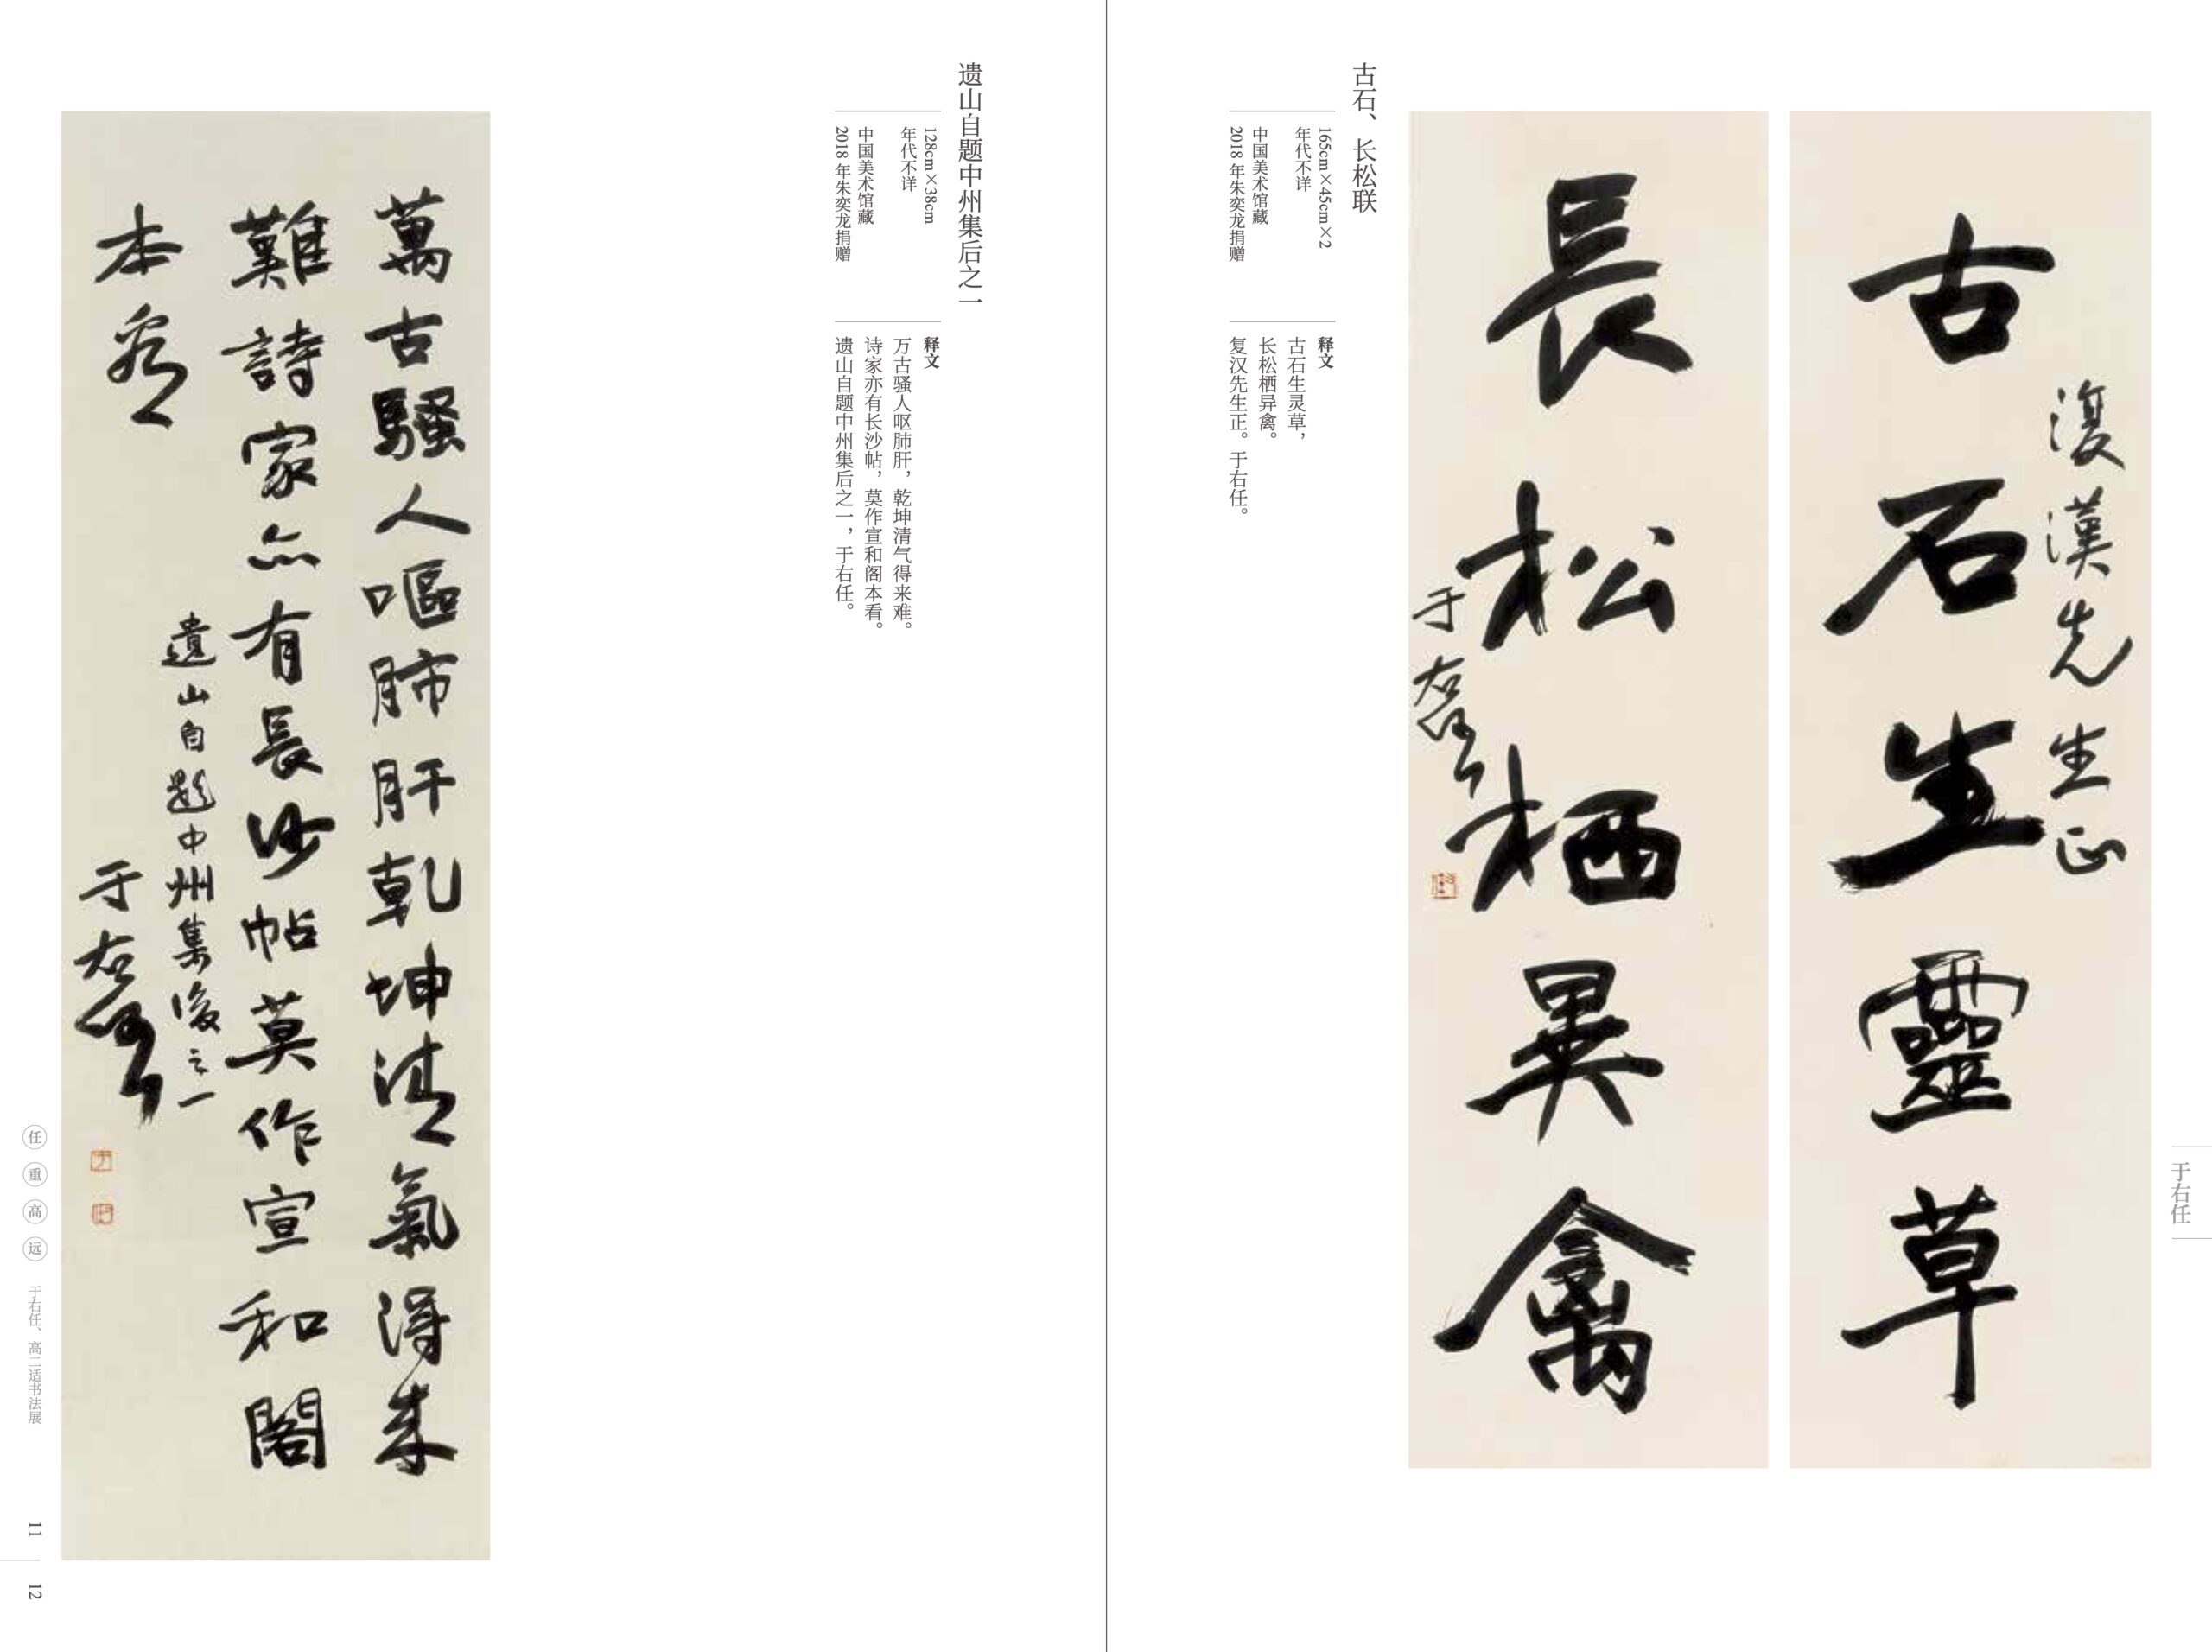 于右任
復漢先生正
古石生靈草
長松栖異禽
于右任
古石、长松联
165cm×45cm×2
年代不详
中国美术馆藏
2018 年朱奕龙捐赠
释文
古石生灵草，
长松栖异禽。
复汉先生正。于右任。
遗山自题中州集后之一
128cm×38cm
年代不详
中国美术馆藏
2018 年朱奕龙捐赠
释文
万古骚人呕肺肝，乾坤清气得来难。
诗家亦有长沙帖，莫作宣和阁本看。
遗山自题中州集后之一，于右任。
萬古騷人嘔肺肝乾坤清氣得來
難詩家亦有長沙帖莫作宣和閣
本看
遺山自題中州集後之一
于右任
任重高远
于右任、高二适书法展
11
12